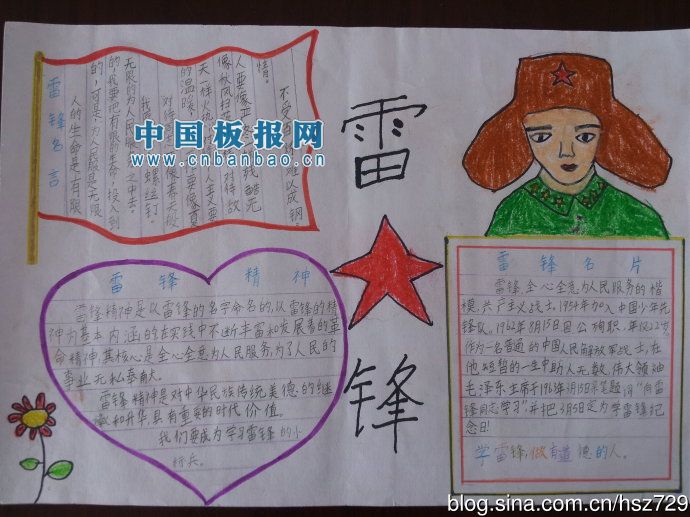 雷锋名言
人的生命是有限
的,可是,为人民服务是无限
的,我要把有限的生命,投入到
无限的为人民服务之中去。
螺丝钉。
对待同志要像春天般
的温暖
天一样火热
主义要
像秋风扫
对待敌
人要像严冬一样残酷无
情。
不受百
难以成钢。
中国板报网
www.cnbanbao.cn
雷
锋
雷锋精神
雷锋精神是以雷锋的名字命名的,以雷锋的精
神为基本内涵的在实践中不断丰富和发展着的革
命精神,其核心是全心全意为人民服务,为了人民的
事业无私奉献。
雷锋精神是对中华民族传统美德的继
承和升华,具有重要的时代价值。
我们要成为学习雷锋的小
标兵。
雷锋名片
雷锋,全心全意为人民服务的楷
模,共产主义战士,1954年加入中国少年先
锋队,1962年8月15日因公殉职,年仅22岁,
作为一名普通的中国人民解放军战士,在
他短暂的一生中助人无数,伟大领袖
毛泽东主席于1963年3月5日亲笔题词"向雷
锋同志学习",并把3月5日定为学雷锋纪
念日!
学雷锋,做有道德的人。
blog.sina.com.cn/hsz729